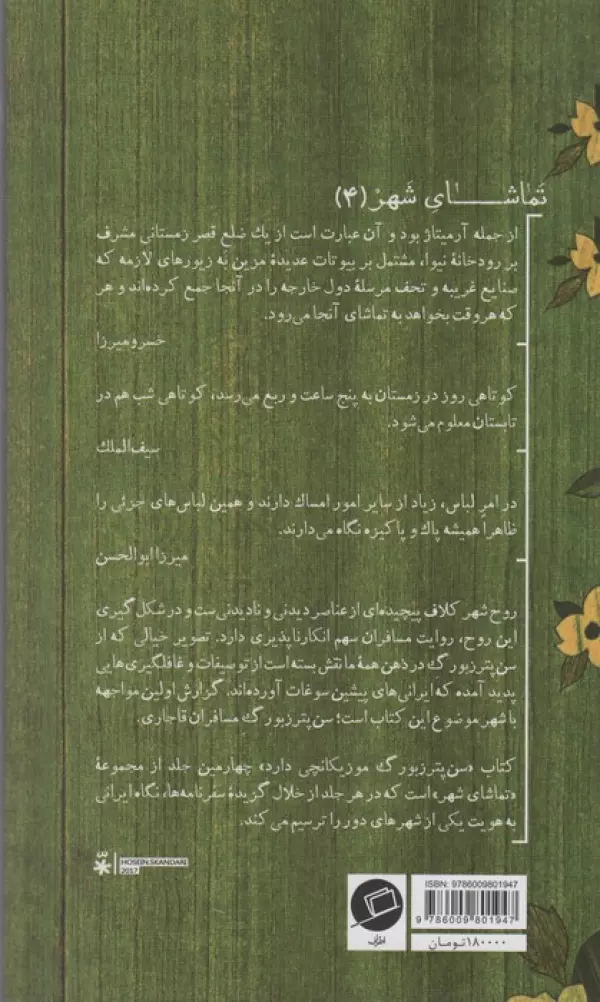 تَماشـــای شَهرْ (۴)
از جمله آرمیتاژ بود و آن عبارت است از یك ضلع قصر زمستانی مشرف
بر رودخانهٔ نیوا، مشتمل بر بیوتات عدیدهٔ مزین به زیورهای لازمه که
صنایع غریبه و تحف مرسلهٔ دول خارجه را در آنجا جمع کرده‌اند و هر
که هروقت بخواهد به تماشای آنجا می‌رود.
خسرو میرزا
کوتاهی روز در زمستان به پنج ساعت و ربع می‌رسد، کوتاهی شب هم در
تابستان معلوم می‌شود.
سیف‌الملك
در امرِ لباس، زیاد از سایر امور امساك دارند و همین لباس‌های جزئی را
ظاهراً همیشه پاك و پاکیزه نگاه می‌دارند.
میرزا ابوالحسن
روح شهر کلاف پیچیده‌ای از عناصر دیدنی و نادیدنی‌ست و در شکل‌گیری
این روح، روایت مسافران سهم انکارناپذیری دارد. تصویر خیالی که از
سن‌پترزبورگ در ذهن همهٔ ما نقش بسته است از توصیفات و غافلگیری‌هایی
پدید آمده که ایرانی‌های پیشین سوغات آورده‌اند. گزارش اولین مواجهه
با شهر موضوع این کتاب است؛ سن‌پترزبورگِ مسافران قاجاری.
کتاب «سن‌پترزبورگ موزیکانچی دارد» چهارمین جلد از مجموعهٔ
«تماشای شهر» است که در هر جلد از خلال گزیدهٔ سفرنامه‌ها، نگاه ایرانی
به هویت یکی از شهرهای دور را ترسیم می‌کند.
HOSEIN.SKANDARI
2017
ISBN: 9786009801947
9 786009 801947
۱۸۰۰۰۰ تومان
اطراف